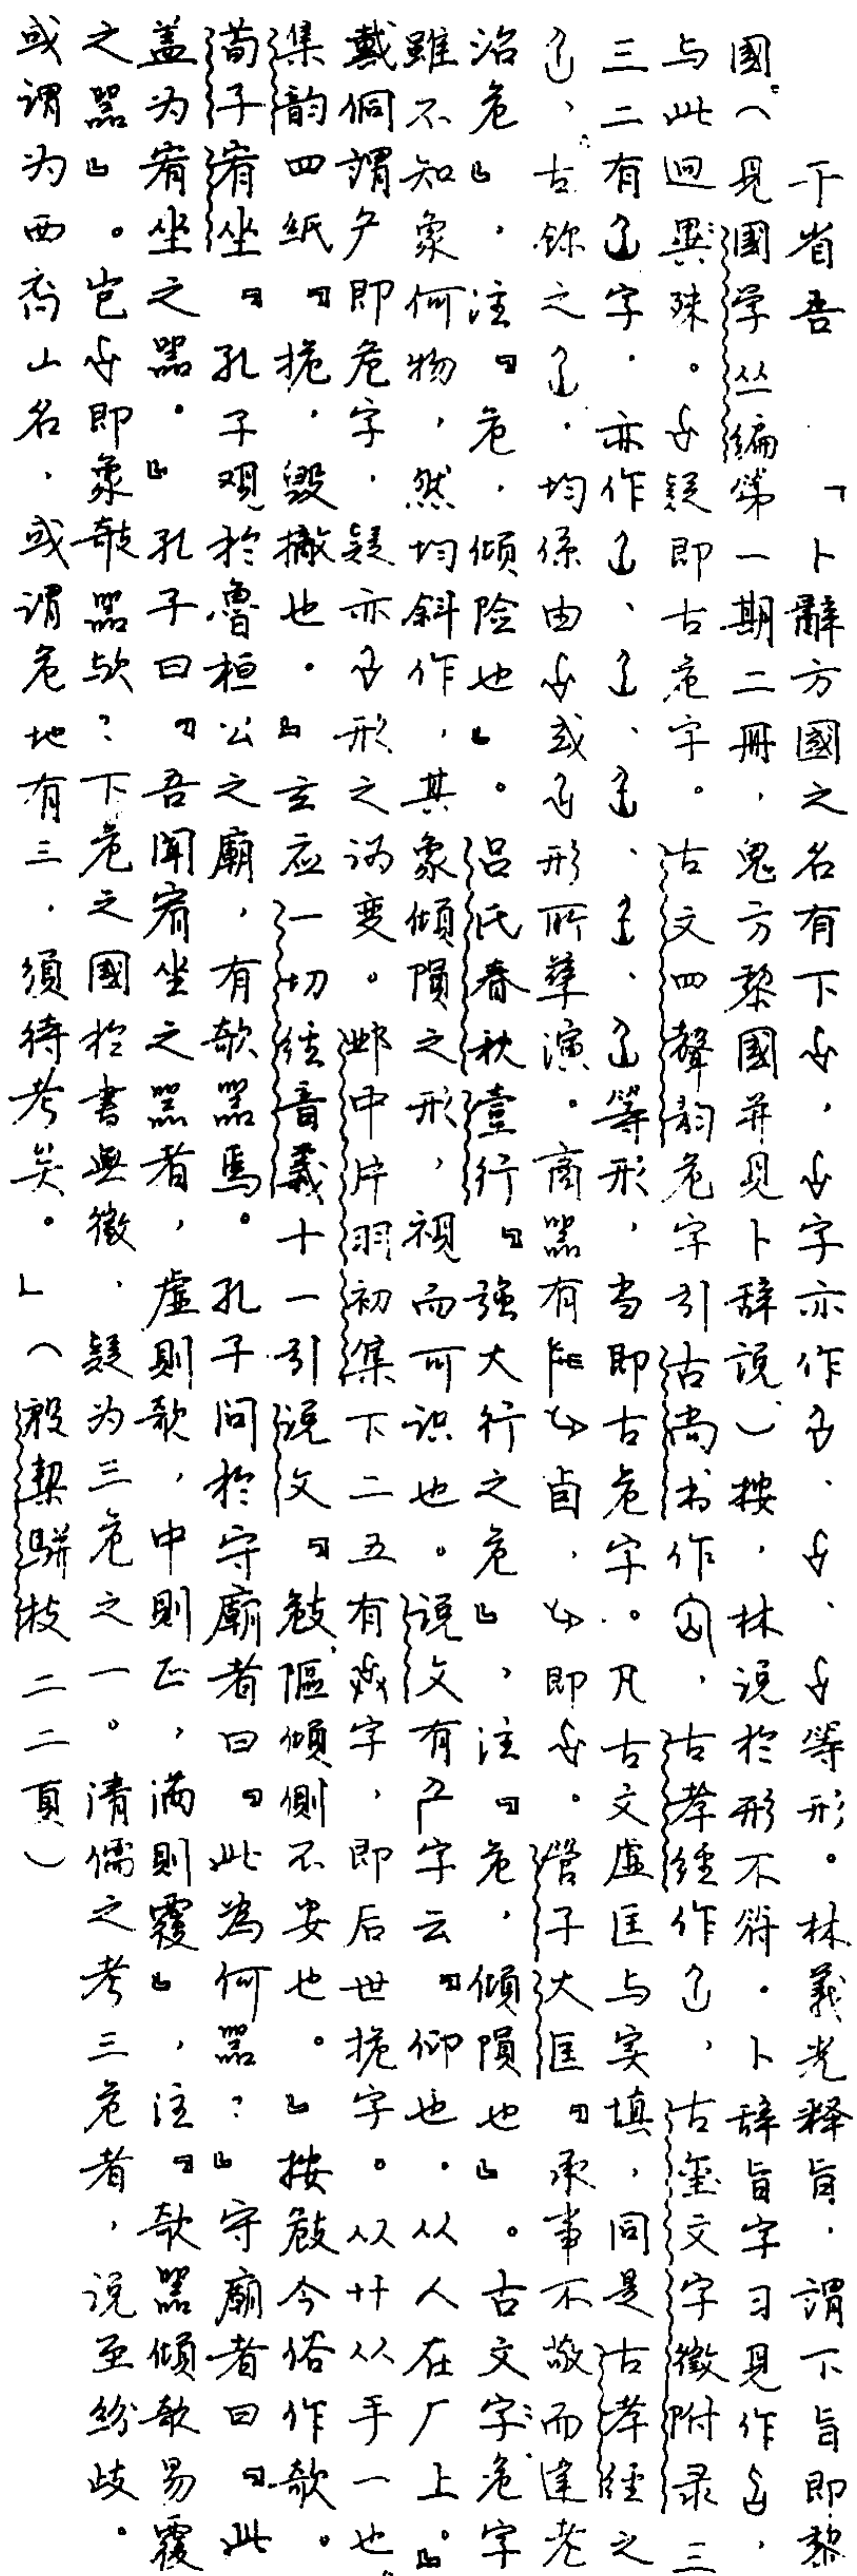 于省吾 「卜辭方國之名有下，字亦作、、等形。林義光释旨，謂下旨即黎
國。（見國学丛編第一期二冊，鬼方黎國并見卜辞説）按，林说於形不符。卜辞旨字习見作，
与此迥異殊。疑即古危字。古文四聲韵危字引古尚书作，古孝經作，古璽文字徵附录三
三二有字，亦作、、、、等形，当即古危字。凡古文虚匡与实填，同是古孝經之
，古鉨之，均係由或形所孳演。商器有卣，即。管子大匡『承事不敬而違老
治危』，注『危，傾险也』。吕氏春秋壹行『強大行之危』，注『危，傾隕也』。古文字危字
雖不知象何物，然均斜作，其象傾隕之形，視而可识也。说文有字云『仰也，从人在厂上。』
戴侗謂即危字，疑亦形之讹变。邺中片羽初集下二五有字，即后世字。从廾从手一也。
集韵四纸『，毁撤也。』玄应一切经音義十一引说文『攲傾側不安也。』按今俗作欹。
荀子宥坐『孔子观於魯桓公之廟，有欹器焉。孔子问於守廟者曰『此為何器？』守廟者曰『此
盖为宥坐之器。』孔子曰『吾闻宥坐之器者，虚則欹，中則正，满則覆』，注『欹器傾欹易覆
之器』。岂即象攲器欤？下危之國於書無徵，疑为三危之一。清儒之考三危者，说至纷歧。
或谓为西裔山名，或谓危地有三，須待考矣。」（殷契駢枝二二頁）